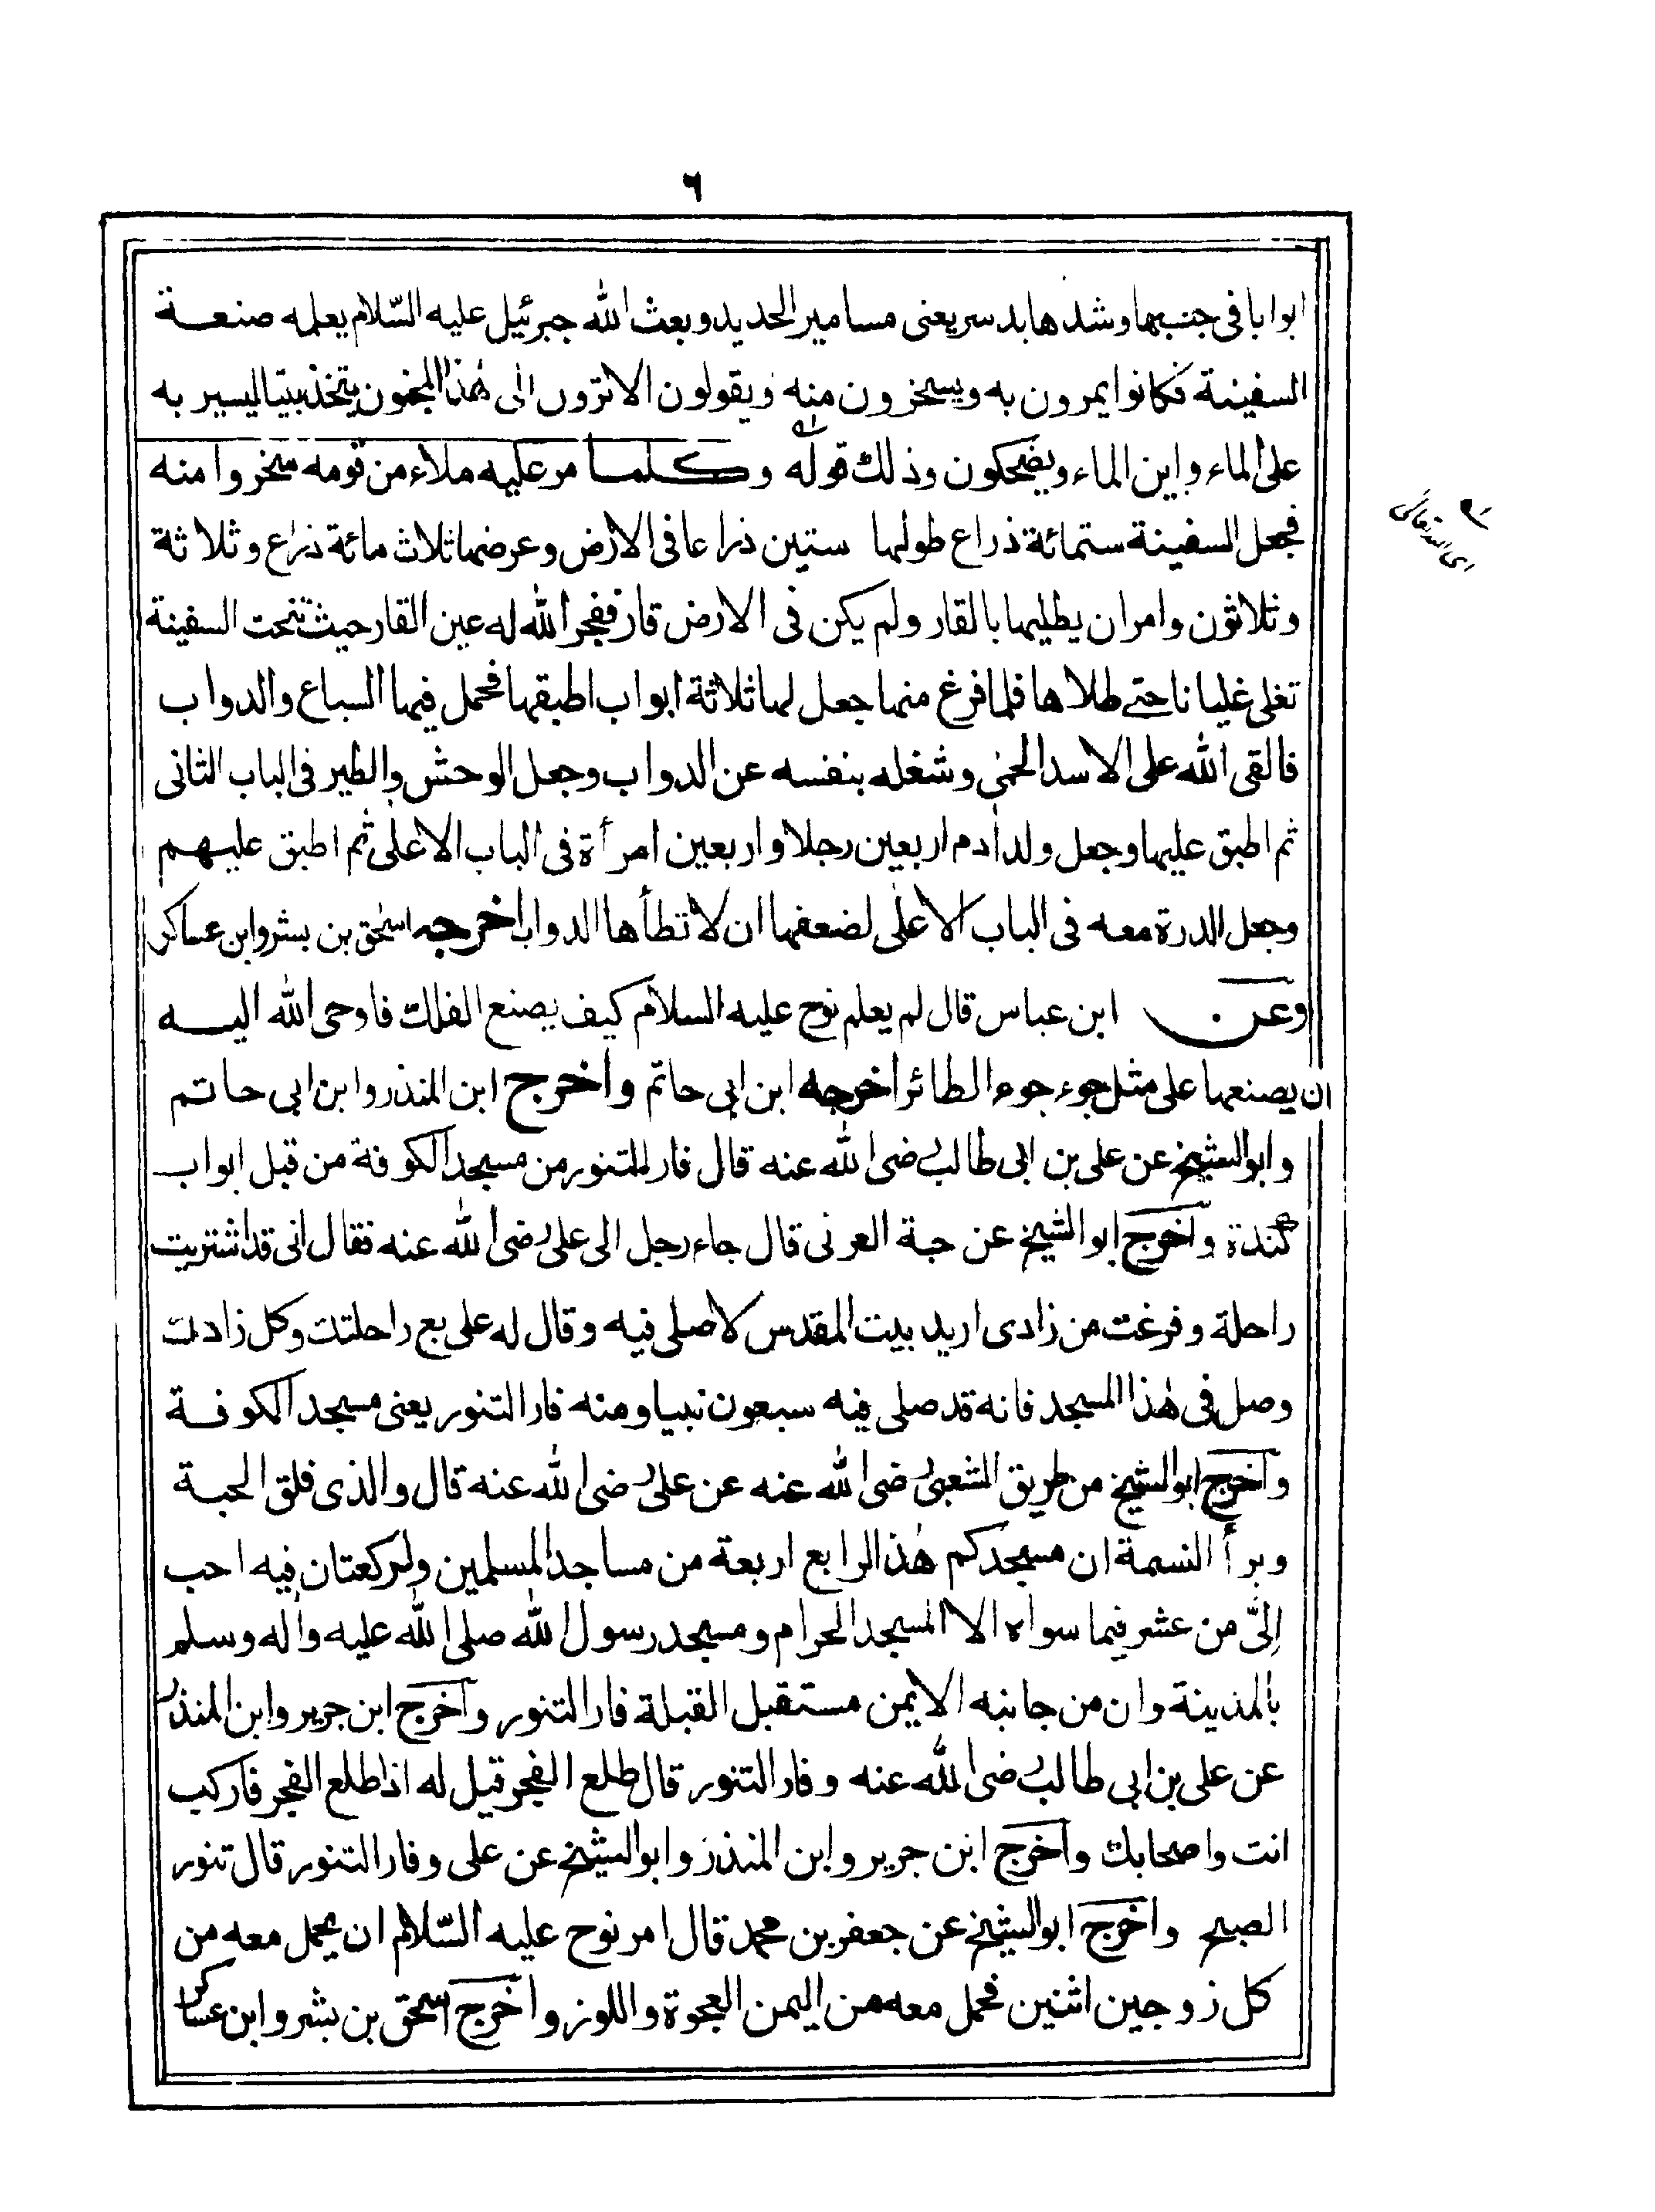 ٦
ابوابا فى جنبيها وشدها بدسر يعنى مسامير الحديد وبعث الله جبرئيل عليه السّلام يعلمه صنعة
السفينة فكانوا يمرون به ويسخرون منه ويقولون الا ترون الى هٰذا المجنون يتخذ بيتا ليسير به
على الماء واين الماء ويضحكون وذلك قوله وكلما مر عليه ملاء من قومه سخروا منه
فجعل السفينة ستمائة ذراع طولها ستين ذراعا فى الارض وعرضها ثلاث مائة ذراع وثلاثة
وثلاثون وامر ان يطليها بالقار ولم يكن فى الارض قار ففجر الله له عين القار حيث تنحت السفينة
تغلى غليانا حتے طلاها فلما فرغ منها جعل لها ثلاثة ابواب اطبقها فحمل فيها السباع والدواب
فالقى الله على الاسد الحمى وشغله بنفسه عن الدواب وجعل الوحش والطير فى الباب الثانى
ثم اطبق عليها وجعل ولد اٰدم اربعين رجلا واربعين امرأة فى الباب الاعلى ثم اطبق عليهم
وجعل الدرة معه فى الباب الاعلى لضعفها ان لا تطأها الدواب اخرجه اسحٰق بن بشر وابن عساكر
وعن ابن عباس قال لم يعلم نوح عليه السلام كيف يصنع الفلك فاوحى الله اليه
ان يصنعها على مثل جوء جوء الطائر اخرجه ابن ابى حاتم واخرج ابن المنذر وابن ابى حاتم
وابو الشيخ عن على بن ابى طالب رضى الله عنه قال فار للتنور من مسجد الكوفة من قبل ابواب
كندة واخرج ابو الشيخ عن حبة العرنى قال جاء رجل الى على رضى الله عنه فقال انى قد اشتريت
راحلة وفرغت من زادى اريد بيت المقدس لاصلى فيه وقال له على بع راحلتك وكل زادك
وصل فى هٰذا المسجد فانه قد صلى فيه سبعون نبيا ومنه فار التنور يعنى مسجد الكوفة
واخرج ابو الشيخ من طريق الشعبى رضى الله عنه عن على رضى الله عنه قال والذى فلق الحبة
وبرأ النسمة ان مسجدكم هٰذا الرابع اربعة من مساجد المسلمين ولركعتان فيه احب
اِلىّ من عشر فيما سواه الا المسجد الحرام ومسجد رسول الله صلى الله عليه واٰله وسلم
بالمدينة وان من جانبه الايمن مستقبل القبلة فار التنور واخرج ابن جرير وابن المنذر
عن على بن ابى طالب رضى الله عنه وفار التنور قال طلع الفجر قيل له اذا طلع الفجر فاركب
انت واصحابك واخرج ابن جرير وابن المنذر وابو الشيخ عن على وفار التنور قال تنور
الصبح واخرج ابو الشيخ عن جعفر بن محمد قال امر نوح عليه السّلام ان يحمل معه من
كل زوجين اثنين فحمل معه من اليمن العجوة واللوز واخرج اسحٰق بن بشر وابن عساكر
اى الله تعالى